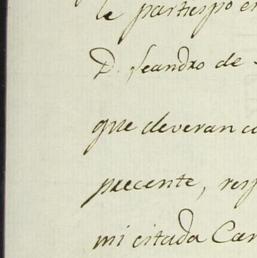 le partizipo en
D. Leandro de
que deveran co
precente, resp
mi citada Car